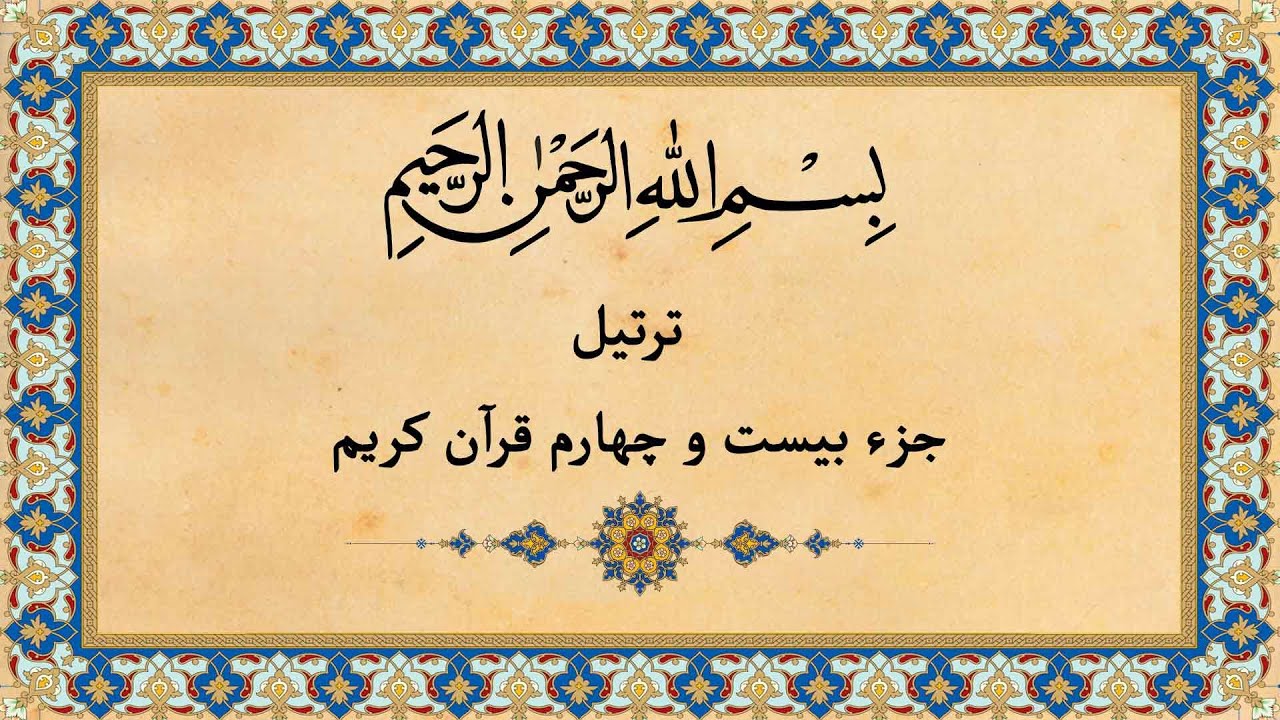 بِسْمِ اللهِ الرَّحْمٰنِ الرَّحِيمِ
ترتیل
جزء بیست و چهارم قرآن کریم